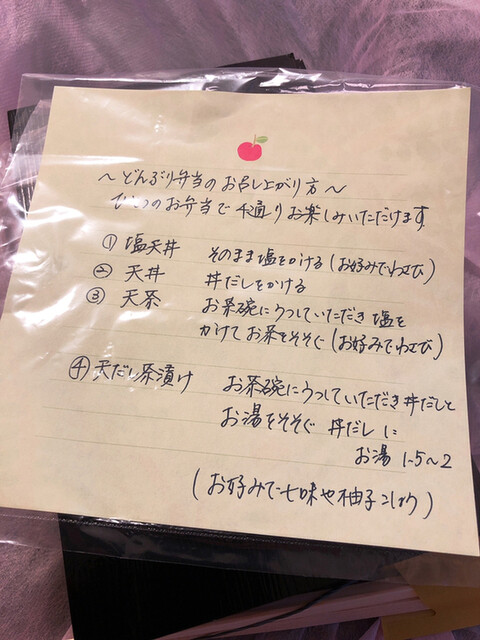 ～どんぶり弁当のお召し上がり方～
ひとつのお弁当で4通りお楽しみいただけます
① 塩天丼 そのまま塩をかける(お好みでわさび)
② 天丼 丼だしをかける
③ 天茶 お茶碗にうつしていただき塩を
かけてお茶をそそぐ(お好みでわさび)
④ 天だし茶漬け お茶碗にうつしていただき丼だしと
お湯をそそぐ 丼だし1に
お湯 1.5～2
(お好みで七味や柚子こしょう)